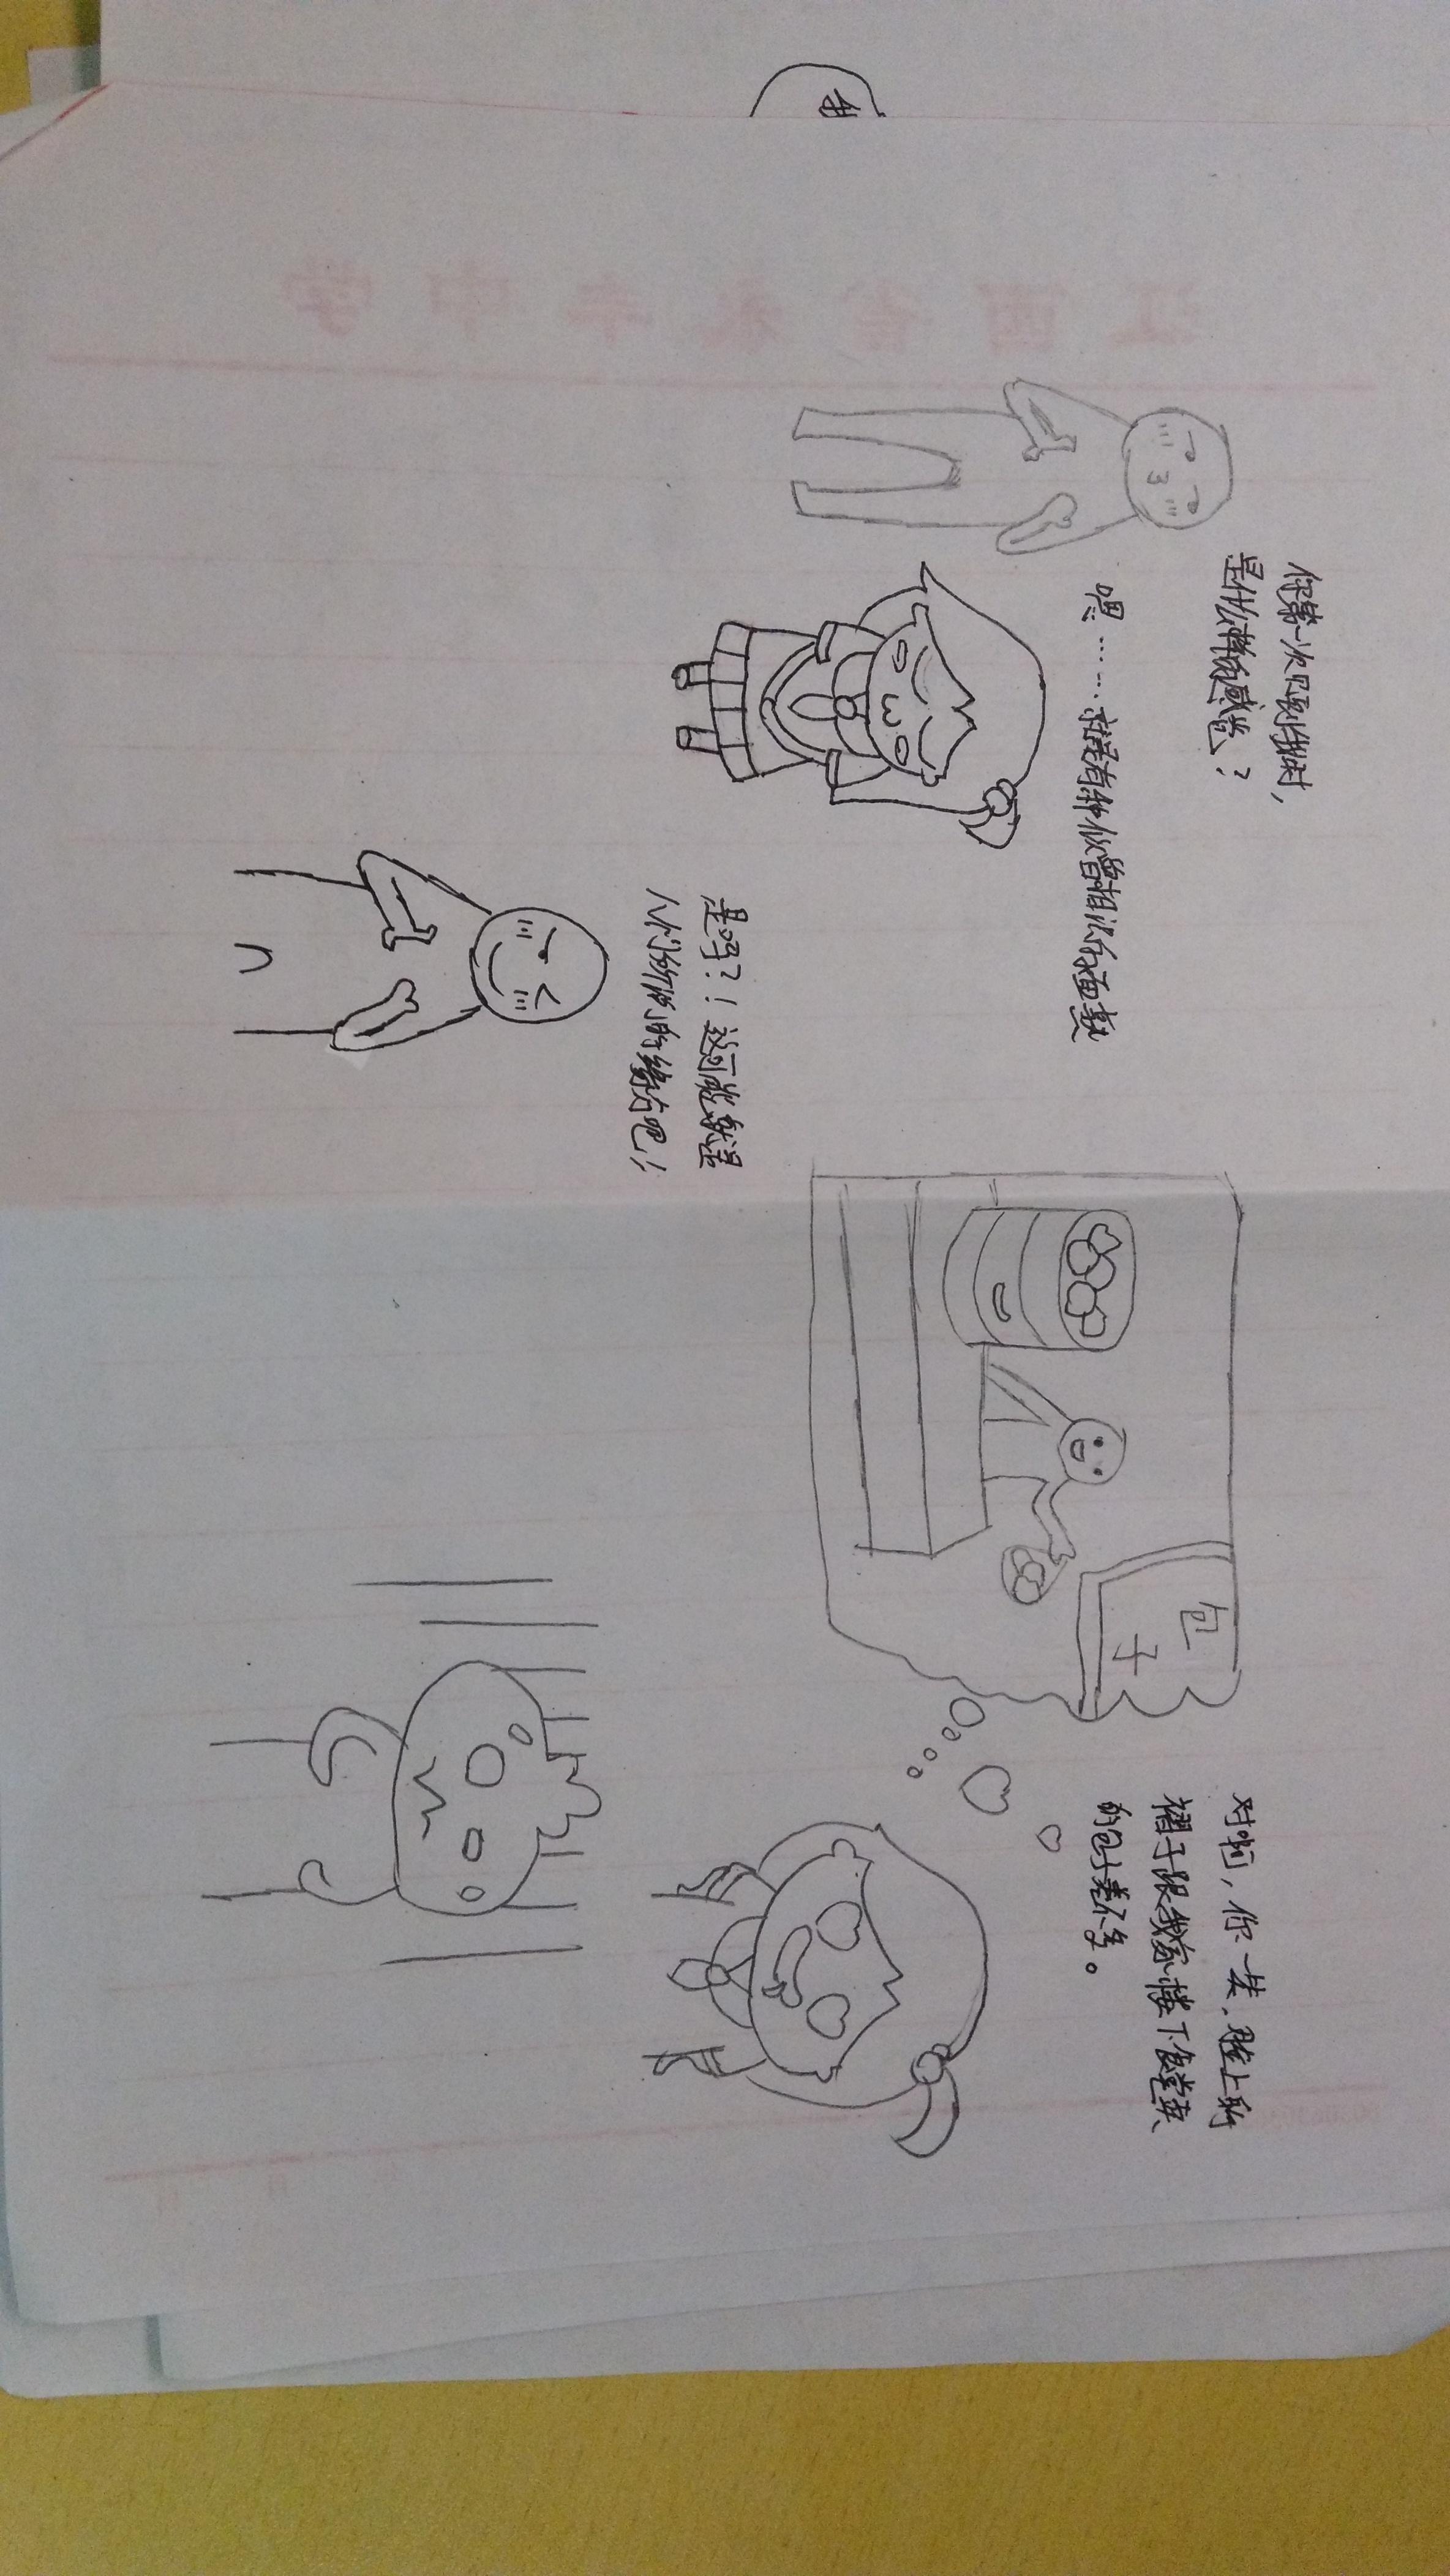 你第一次见到我时,
是什么样的感觉?
嗯……就是有种似曾相识的面熟
是吗?!这可能就是
人们所说的缘分吧!
包子
对啊,你一笑,脸上的
褶子跟我家楼下食堂卖
的包子差不多。
江西省永丰中学